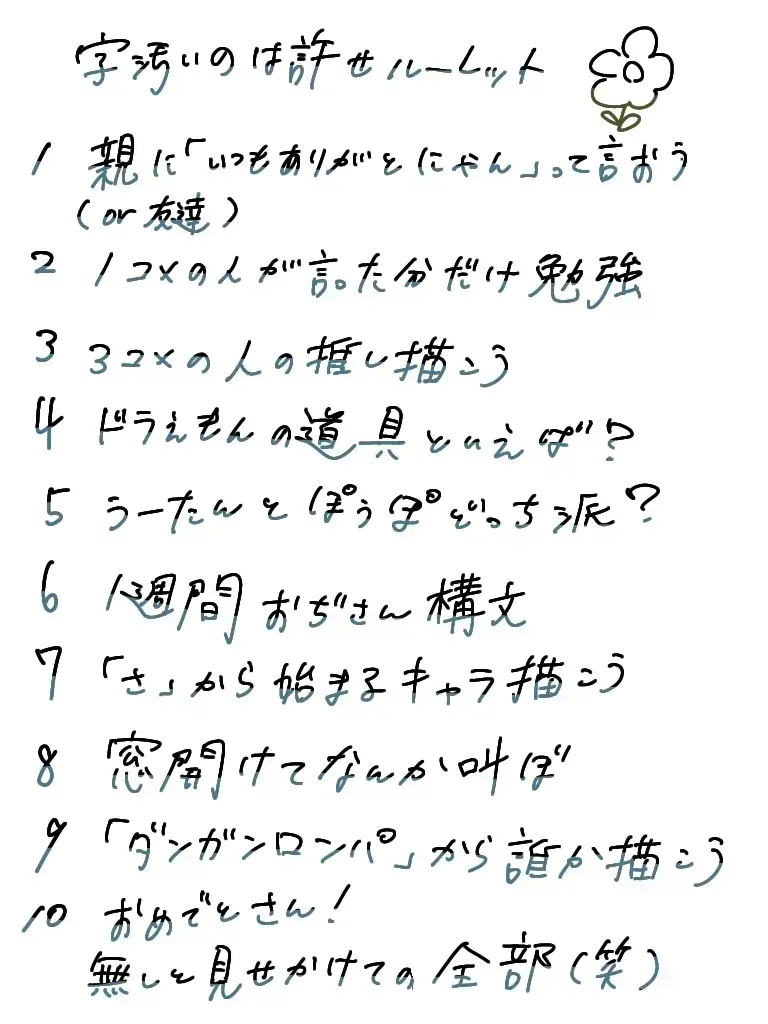 字汚いのは許せルーレット
1 親に「いつもありがとにゃん」って言おう
(or 友達)
2 1コメの人が言った分だけ勉強
3 3コメの人の推し描こう
4 ドラえもんの道具といえば?
5 うーたんとぽぅぽどっち派?
6 1週間おぢさん構文
7 「さ」から始まるキャラ描こう
8 窓開けてなんか叫ぼ
9 「ダンガンロンパ」から誰か描こう
10 おめでとさん!
無しと見せかけての全部(笑)